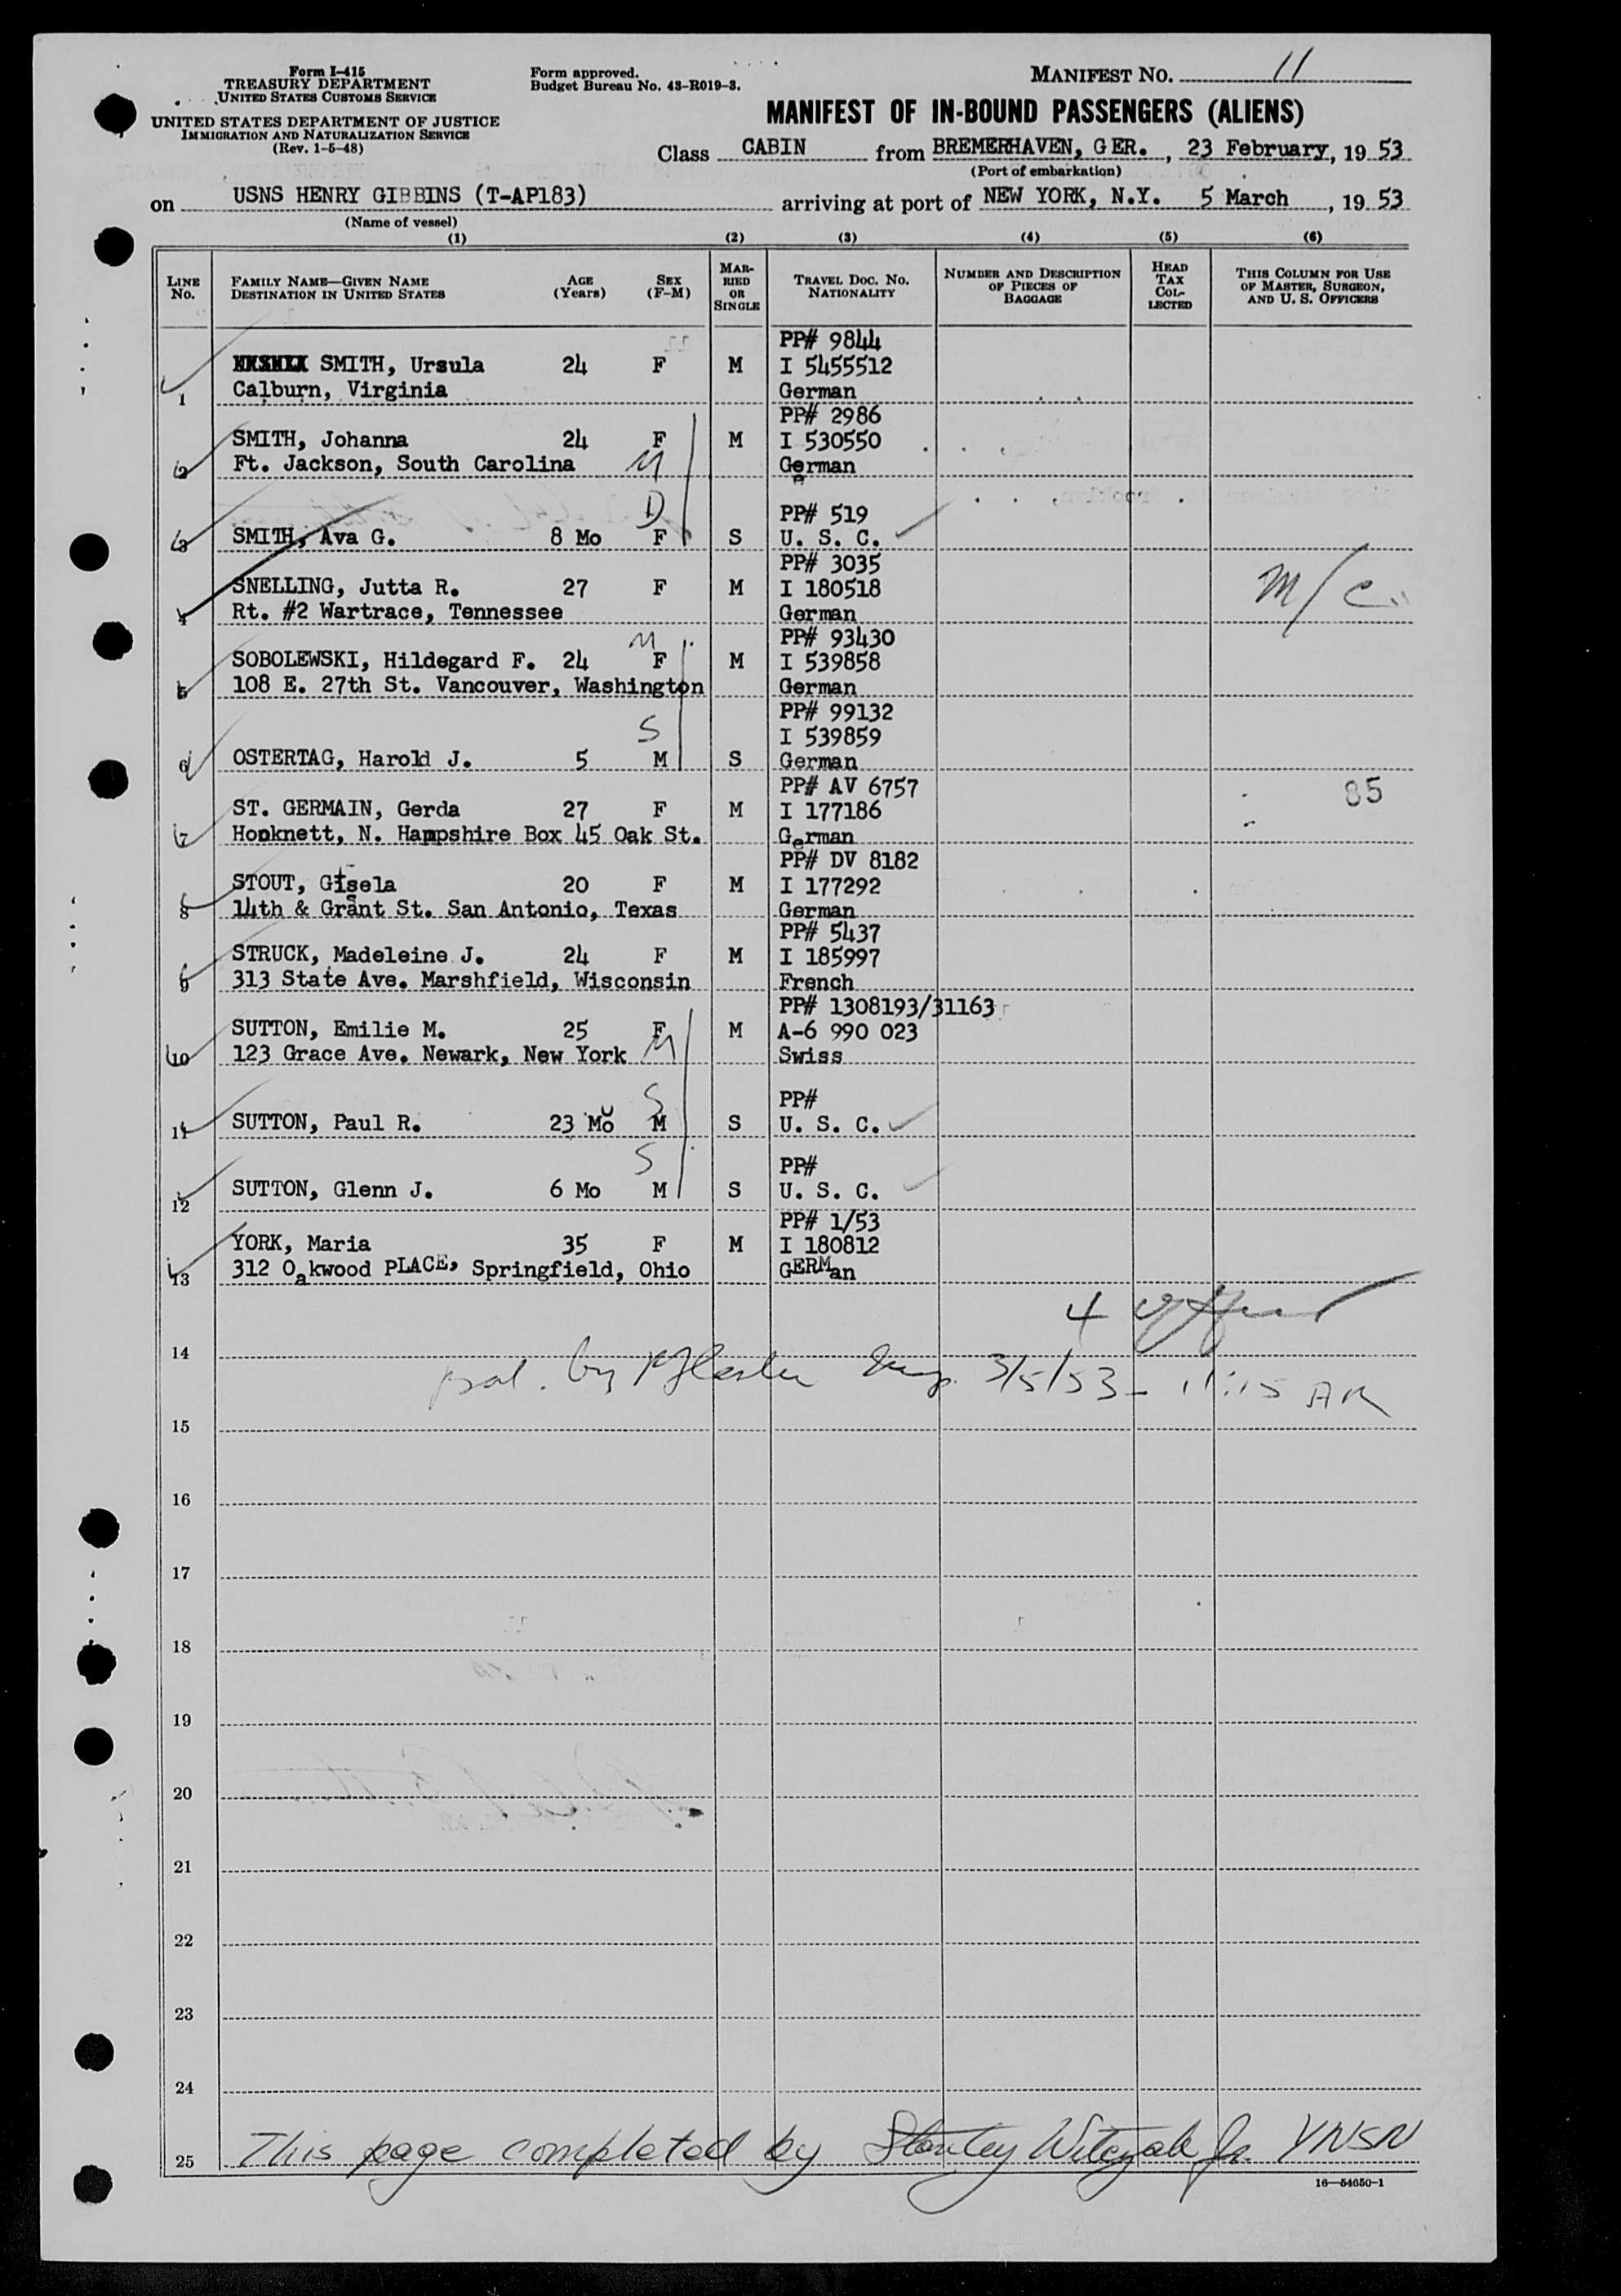 Form I-415
TREASURY DEPARTMENT
UNITED STATES CUSTOMS SERVICE
UNITED STATES DEPARTMENT OF JUSTICE
IMMIGRATION AND NATURALIZATION SERVICE
(Rev. 1-5-48)
Form approved.
Budget Bureau No. 43-R019-3.
MANIFEST NO. 11
MANIFEST OF IN-BOUND PASSENGERS (ALIENS)
Class CABIN from BREMERHAVEN, GER., 23 February, 1953
(Port of embarkation)
on USNS HENRY GIBBINS (T-AP183) arriving at port of NEW YORK, N.Y. 5 March, 1953
(Name of vessel)
(1) (2) (3) (4) (5) (6)
LINE No. FAMILY NAME—GIVEN NAME DESTINATION IN UNITED STATES AGE (Years) SEX (F-M) MARRIED OR SINGLE TRAVEL DOC. NO. NATIONALITY NUMBER AND DESCRIPTION OF PIECES OF BAGGAGE HEAD TAX COLLECTED THIS COLUMN FOR USE OF MASTER, SURGEON, AND U. S. OFFICERS
PP# 9844
SMITH, Ursula 24 F M I 5455512
1 Calburn, Virginia German
PP# 2986
SMITH, Johanna 24 F M I 530550
2 Ft. Jackson, South Carolina M German
D PP# 519
3 SMITH, Ava G. 8 Mo F S U. S. C.
PP# 3035
SNELLING, Jutta R. 27 F M I 180518 M/C
4 Rt. #2 Wartrace, Tennessee German
M PP# 93430
SOBOLEWSKI, Hildegard F. 24 F M I 539858
5 108 E. 27th St. Vancouver, Washington German
PP# 99132
S I 539859
6 OSTERTAG, Harold J. 5 M S German
PP# AV 6757 85
ST. GERMAIN, Gerda 27 F M I 177186
7 Hooknett, N. Hampshire Box 45 Oak St. German
PP# DV 8182
STOUT, Gisela 20 F M I 177292
8 14th & Grant St. San Antonio, Texas German
PP# 5437
STRUCK, Madeleine J. 24 F M I 185997
9 313 State Ave. Marshfield, Wisconsin French
PP# 1308193/31163
SUTTON, Emilie M. 25 F M A-6 990 023
10 123 Grace Ave. Newark, New York M Swiss
S PP#
11 SUTTON, Paul R. 23 Mo M S U. S. C.
S PP#
12 SUTTON, Glenn J. 6 Mo M S U. S. C.
PP# 1/53
YORK, Maria 35 F M I 180812
13 312 Oakwood PLACE, Springfield, Ohio GERMan
4
14
by 3/5/53 - 11:15 AM
15
16
17
18
19
20
21
22
23
24
25 This page completed by Stanley Jr. YNSN
16—54650-1